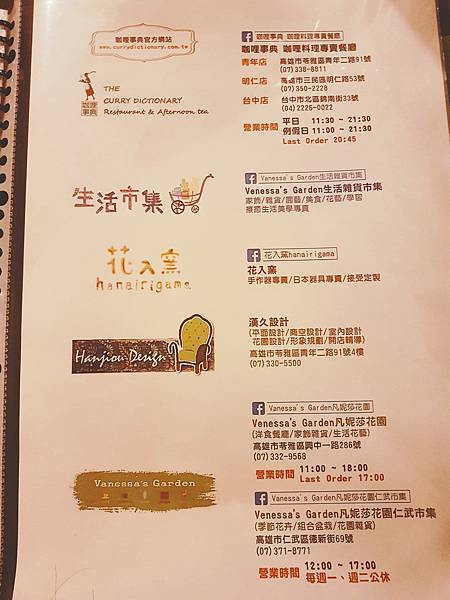 咖哩事典官方網站
www.currydictionary.com.tw
咖哩事典
THE
CURRY DICTIONARY
Restaurant & Afternoon tea
咖哩事典 咖哩料理專賣餐廳
咖哩事典 咖哩料理專賣餐廳
青年店 高雄市苓雅區青年二路91號
(07)338-8811
明仁店 高雄市三民區明仁路53號
(07)350-2228
台中店 台中市北區錦南街33號
(04)2226-0022
營業時間 平日 11:30 ~ 21:30
例假日 11:00 ~ 21:30
Last Order 20:45
生活市集
Vanessa's Garden生活雜貨市集
Venessa's Garden生活雜貨市集
家飾/雜貨/園藝/美食/花藝/學習
療癒生活美學專賣
花入窯
hanairigama
花入窯hanairigama
花入窯
手作器專賣/日本器具專賣/接受定製
Hanjiou Design
漢久設計
(平面設計/商空設計/室內設計
花園設計/形象規劃/開店輔導)
高雄市苓雅區青年二路91號4樓
(07)330-5500
Vanessa's Garden
Vanessa's Garden凡妮莎花園
Venessa's Garden凡妮莎花園
(洋食餐廳/家飾雜貨/生活花藝)
高雄市苓雅區興中一路286號
(07)332-9568
營業時間 11:00 ~ 18:00
Last Order 17:00
Vanessa's Garden凡妮莎花園仁武市集
Vanessa's Garden凡妮莎花園仁武市集
(季節花卉/組合盆栽/花園雜貨)
高雄市仁武區德新街69號
(07)371-8771
營業時間 12:00 ~ 17:00
每週一、週二公休